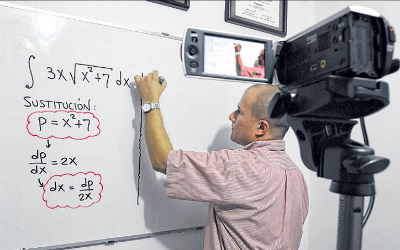 ∫ 3x√(x²+7) dx
SUSTITUCIÓN:
p = x²+7
dp/dx = 2x
dx = dp/2x